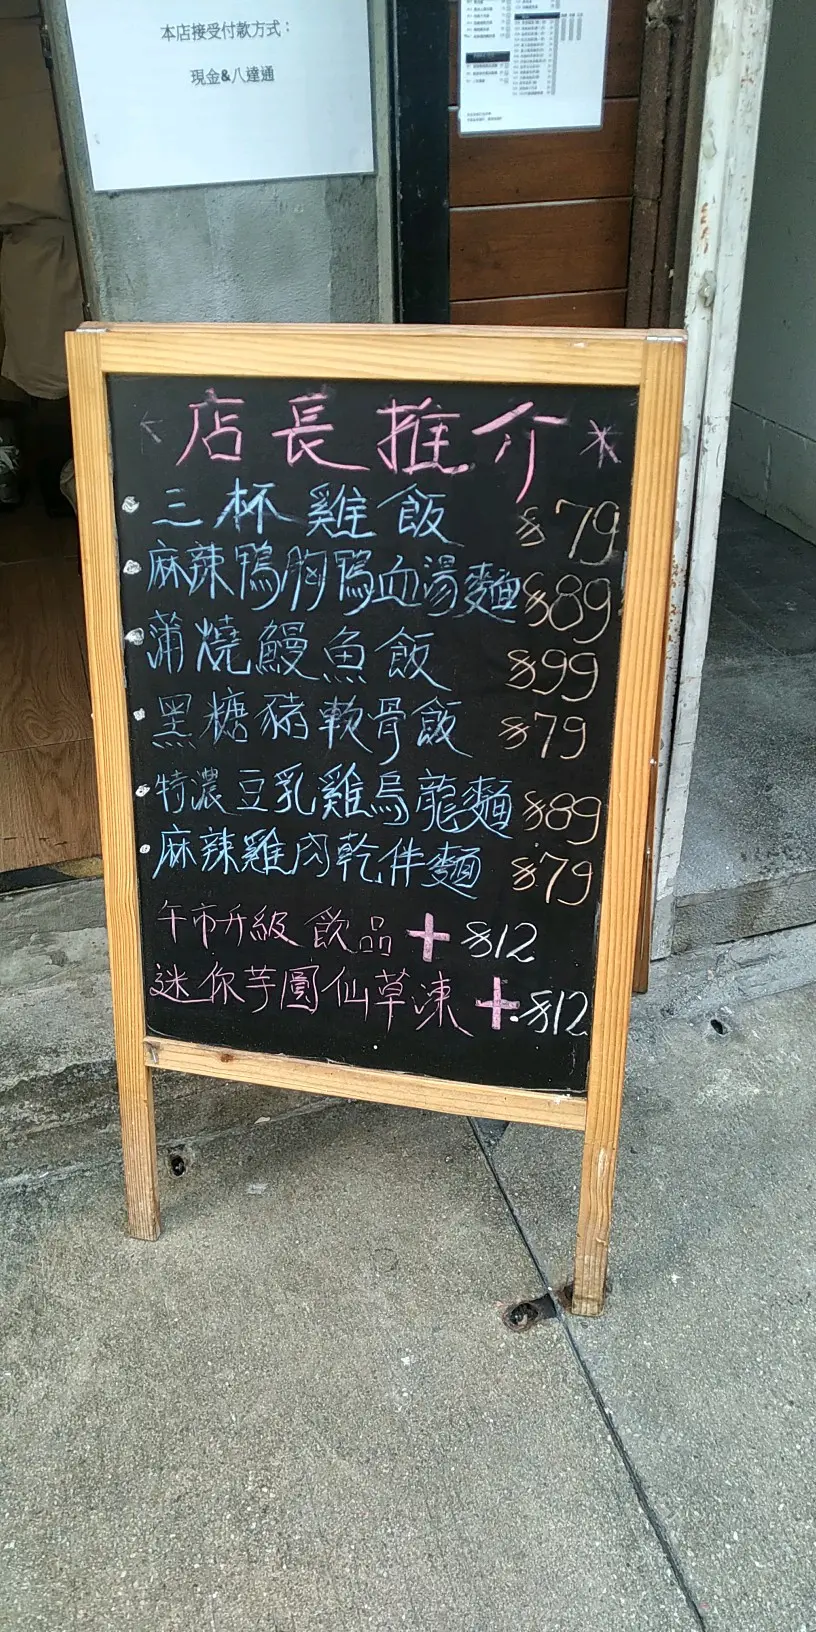 本店接受付款方式：
現金&八達通
店長推介*
三杯雞飯 $79
麻辣鴨胸鴨血湯麵 $89
蒲燒鰻魚飯 $99
黑糖豬軟骨飯 $79
特濃豆乳雞烏龍麵 $89
麻辣雞肉乾伴麵 $79
午市升級飲品+$12
迷你芋圓仙草凍+$12